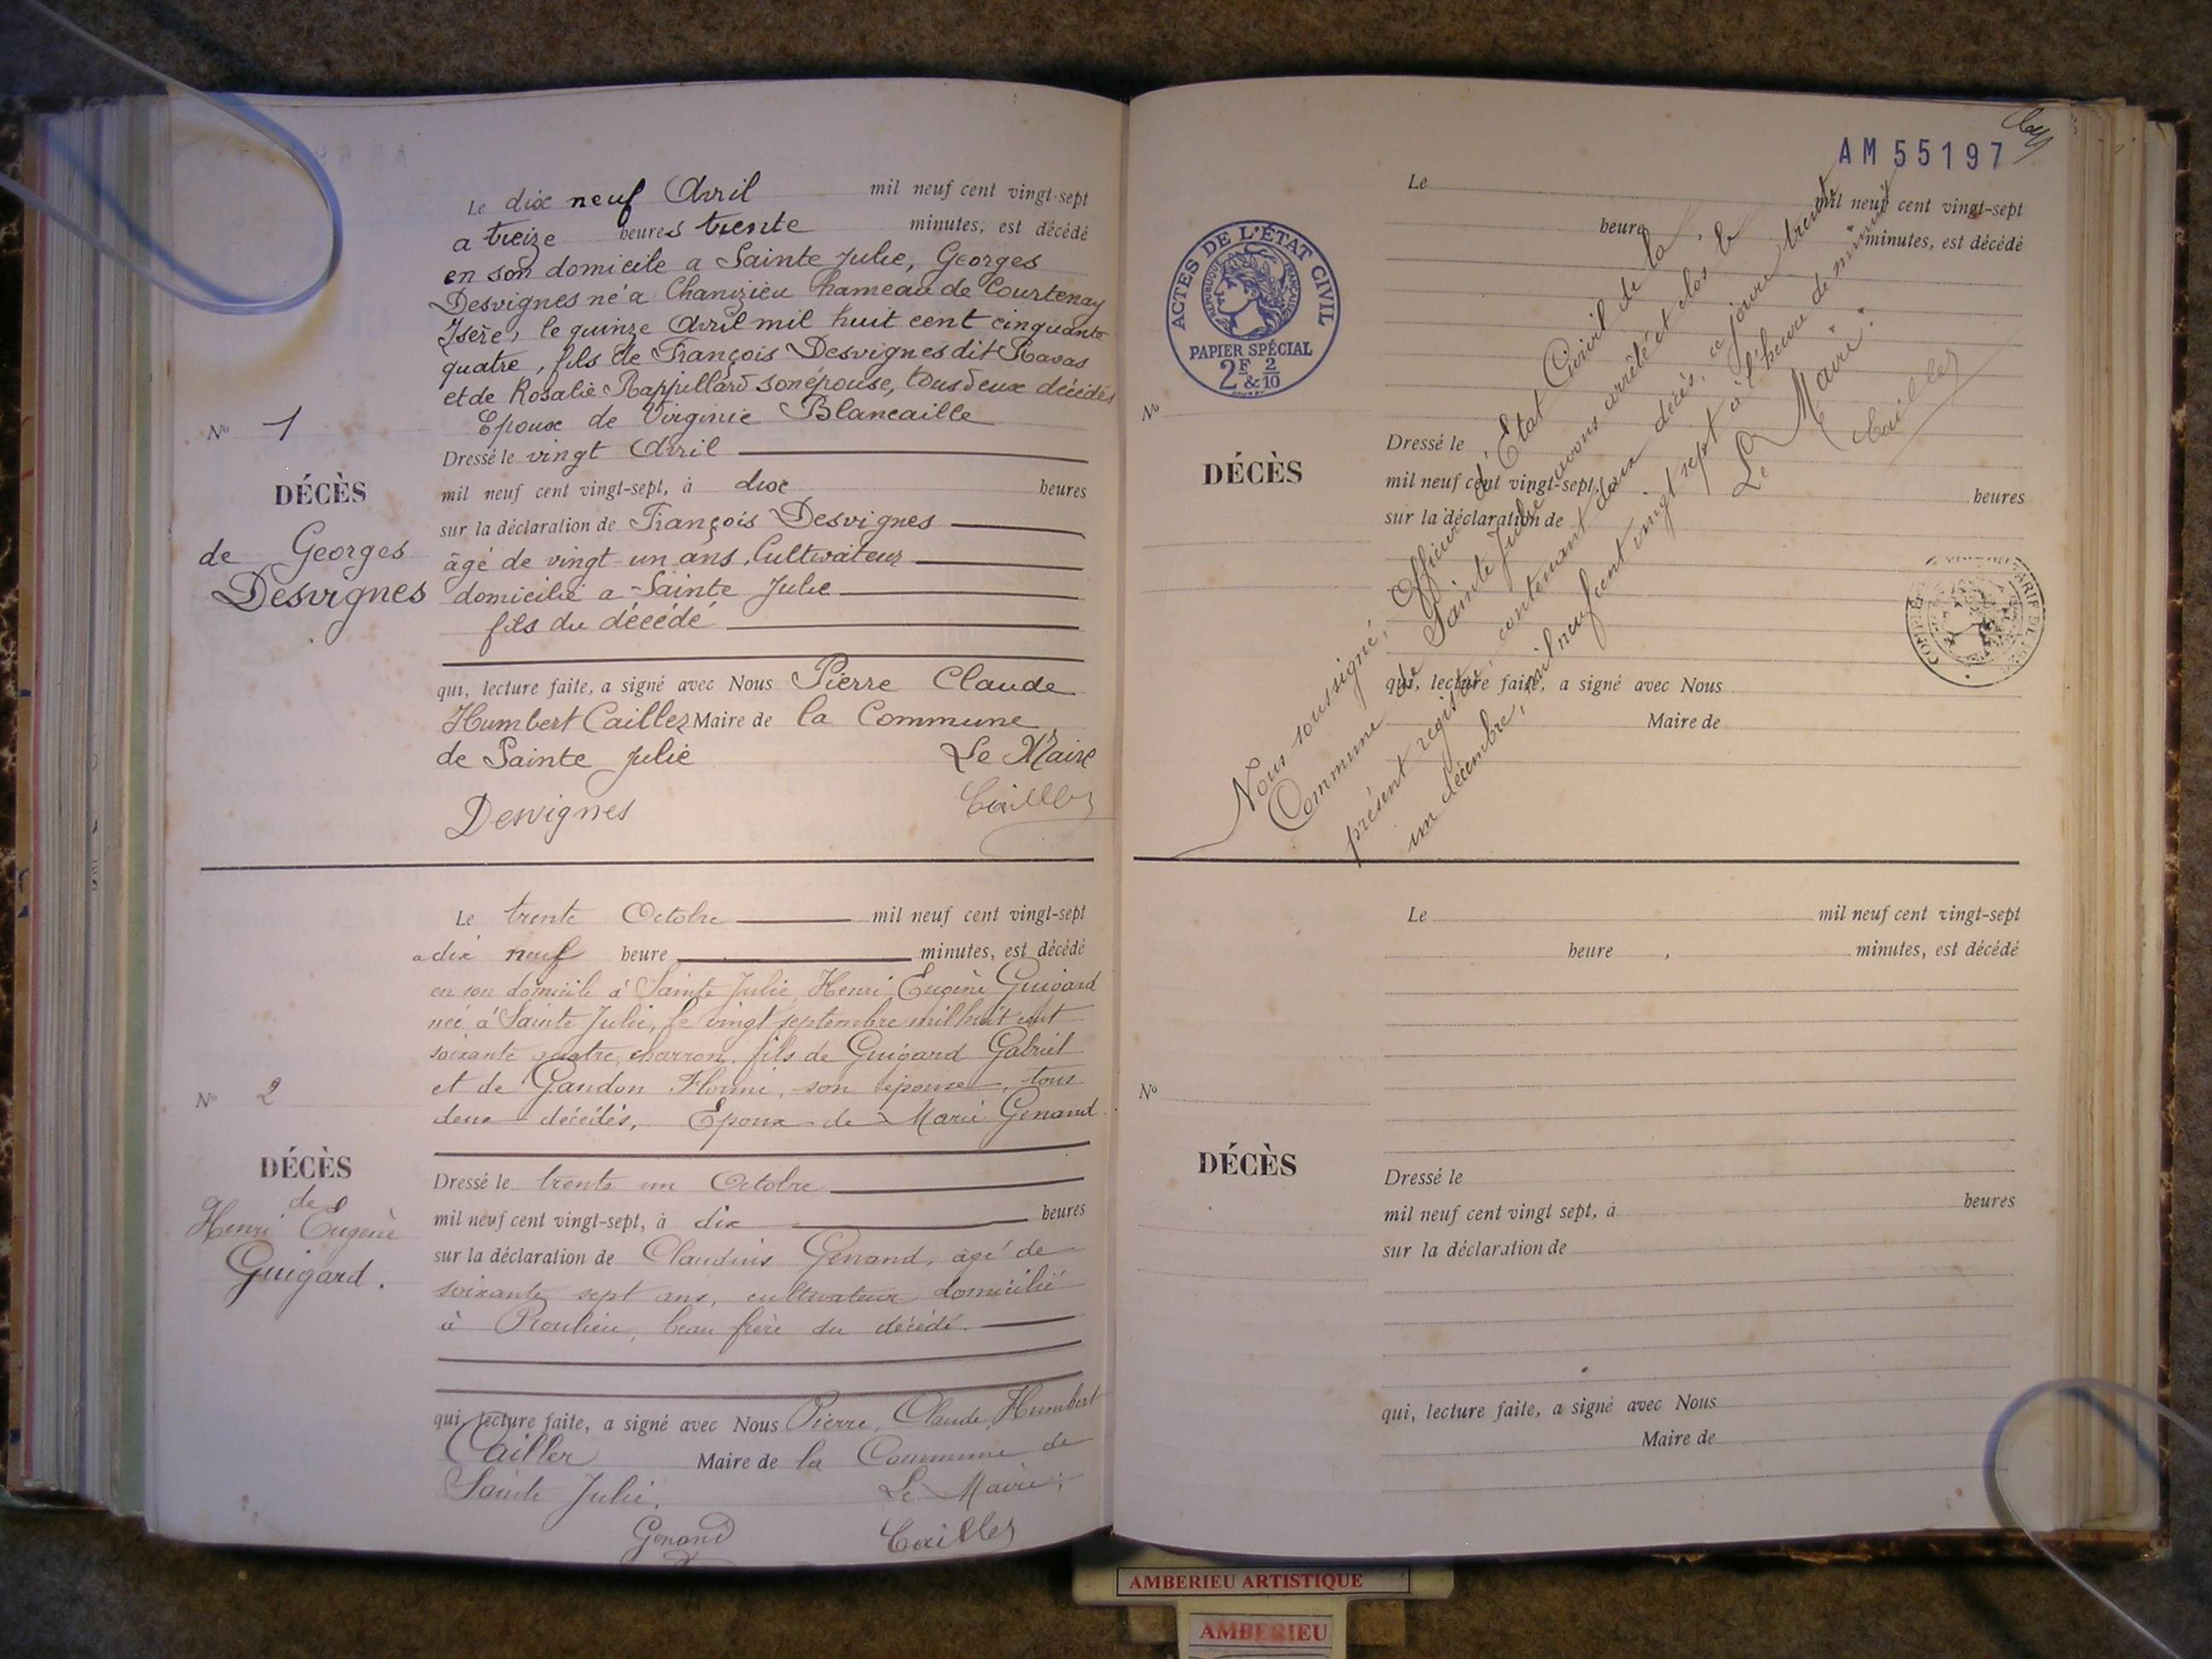 Le dix neuf Avril mil neuf cent vingt-sept
a treize heures trente minutes, est décédé
en son domicile a Sainte Julie, Georges
Desvignes né a Chanizieu hameau de Courtenay
Isère, le quinze Avril mil huit cent cinquante
quatre, fils de François Desvignes dit Ravas
et de Rosalie Rappillard son épouse, tous deux décédés
Epoux de Virginie Blancaille
No 1
Dressé le vingt Avril
DÉCÈS
mil neuf cent vingt-sept, à dix heures
sur la déclaration de François Desvignes
de Georges
âgé de vingt-un ans, Cultivateur
Desvignes
domicilié a Sainte Julie
fils du décédé
qui, lecture faite, a signé avec Nous Pierre Claude
Humbert Caillez Maire de la Commune
de Sainte Julie Le Maire
Desvignes Caillez
Le trente Octobre mil neuf cent vingt-sept
a dix neuf heure minutes, est décédé
en son domicile à Sainte Julie, Henri Eugène Guigard
né à Sainte Julie, le vingt septembre mil huit cent
soixante quatre, charron, fils de Guigard Gabriel
et de Gandon son épouse, tous
No 2
deux décédés, Epoux de Marie Genand
DÉCÈS
Dressé le trente un Octobre
de
Henri Eugène
mil neuf cent vingt-sept, à dix heures
Guigard.
sur la déclaration de Claudius Genand, âgé de
soixante sept ans, cultivateur domicilié
à Proulieu, beau frère du décédé.
qui, lecture faite, a signé avec Nous Pierre, Claude, Humbert
Cailler Maire de la Commune de
Sainte Julie. Le Maire;
Genand Caillez
AM 55197
Le mil neuf cent vingt-sept
heure minutes, est décédé
ACTES DE L'ÉTAT CIVIL
RÉPUBLIQUE FRANÇAISE
PAPIER SPÉCIAL
2F & 2/10
No
DÉCÈS
Dressé le
mil neuf cent vingt-sept, à heures
sur la déclaration de
qui, lecture faite, a signé avec Nous
Maire de
Nous soussigné, Officier d'État Civil de la
Commune de Sainte Julie avons arrêté et clos le
présent registre, contenant deux décès, ce jour trente
un décembre, mil neuf cent vingt sept à l'heure de minuit
Le Maire:
Caillez
Le mil neuf cent vingt-sept
heure , minutes, est décédé
No
DÉCÈS
Dressé le
mil neuf cent vingt sept, à heures
sur la déclaration de
qui, lecture faite, a signé avec Nous
Maire de
AMBERIEU ARTISTIQUE
AMBERIEU